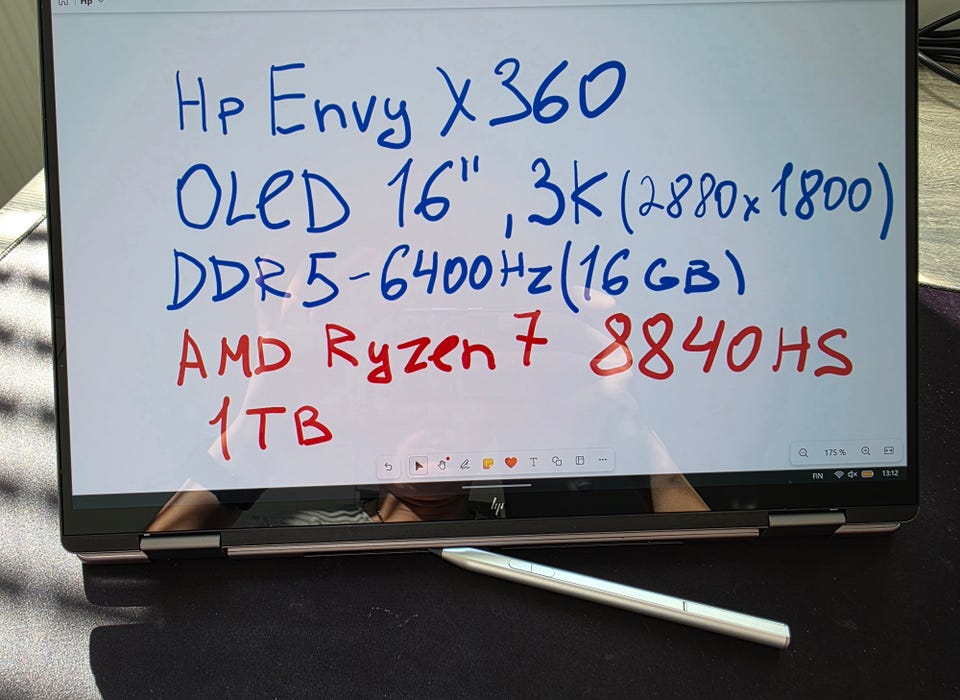 Hp
Hp Envy X360
OLeD 16", 3K (2880x1800)
DDR5-6400Hz (16GB)
AMD Ryzen 7 8840HS
1TB
175 %
FIN 13:12
hp